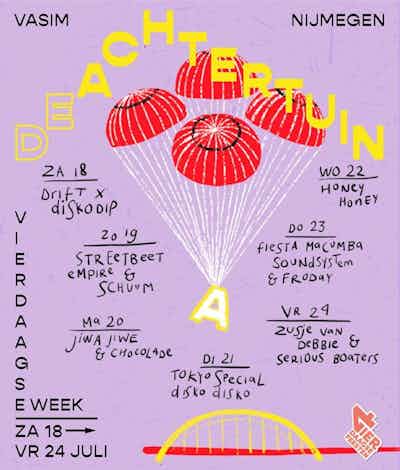 VASIM
NIJMEGEN
DE ACHTERTUIN
ZA 18
DRIFT X
DISKODIP
WO 22
HONEY
HONEY
ZO 19
STREETBEET
EMPIRE &
SCHUUM
DO 23
FIESTA MACUMBA
SOUNDSYSTEM
& FRODAY
A
MA 20
JIWA JIWE
& CHOCOLADE
VR 24
ZUSJE VAN
DEBBIE &
SERIOUS BOATERS
DI 21
TOKYO SPECIAL
DISKO DISKO
VIERDAAGSE WEEK
ZA 18 →
VR 24 JULI
4
VIER
DAAGSE
FEESTEN